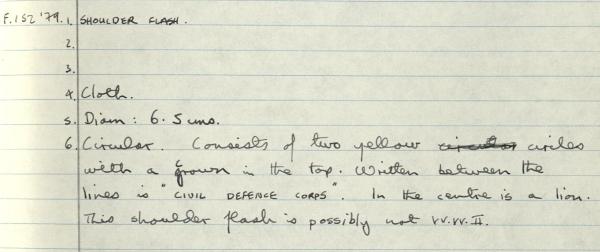 F.152 '79. 1. SHOULDER FLASH.
2.
3.
4. Cloth.
5. Diam: 6.5 cms.
6. Circular. Consists of two yellow circles
with a crown in the top. Written between the
lines is "CIVIL DEFENCE CORPS". In the centre is a lion.
This shoulder flash is possibly not W.W.II.